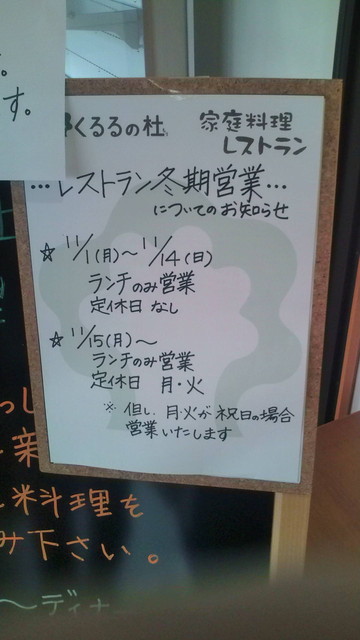 。
す。
くるるの杜
家庭料理
レストラン
…レストラン冬期営業…
についてのお知らせ
☆ 11/1(月)～11/14(日)
ランチのみ営業
定休日 なし
☆ 11/15(月)～
ランチのみ営業
定休日 月・火
※ 但し、月・火が祝日の場合
営業いたします
料理を
み下さい。
～ディナー